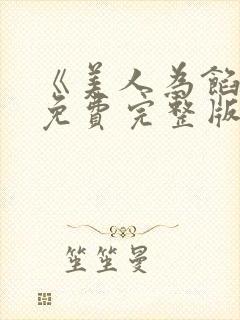 《美人为馅
免费完整版
笙笙曼